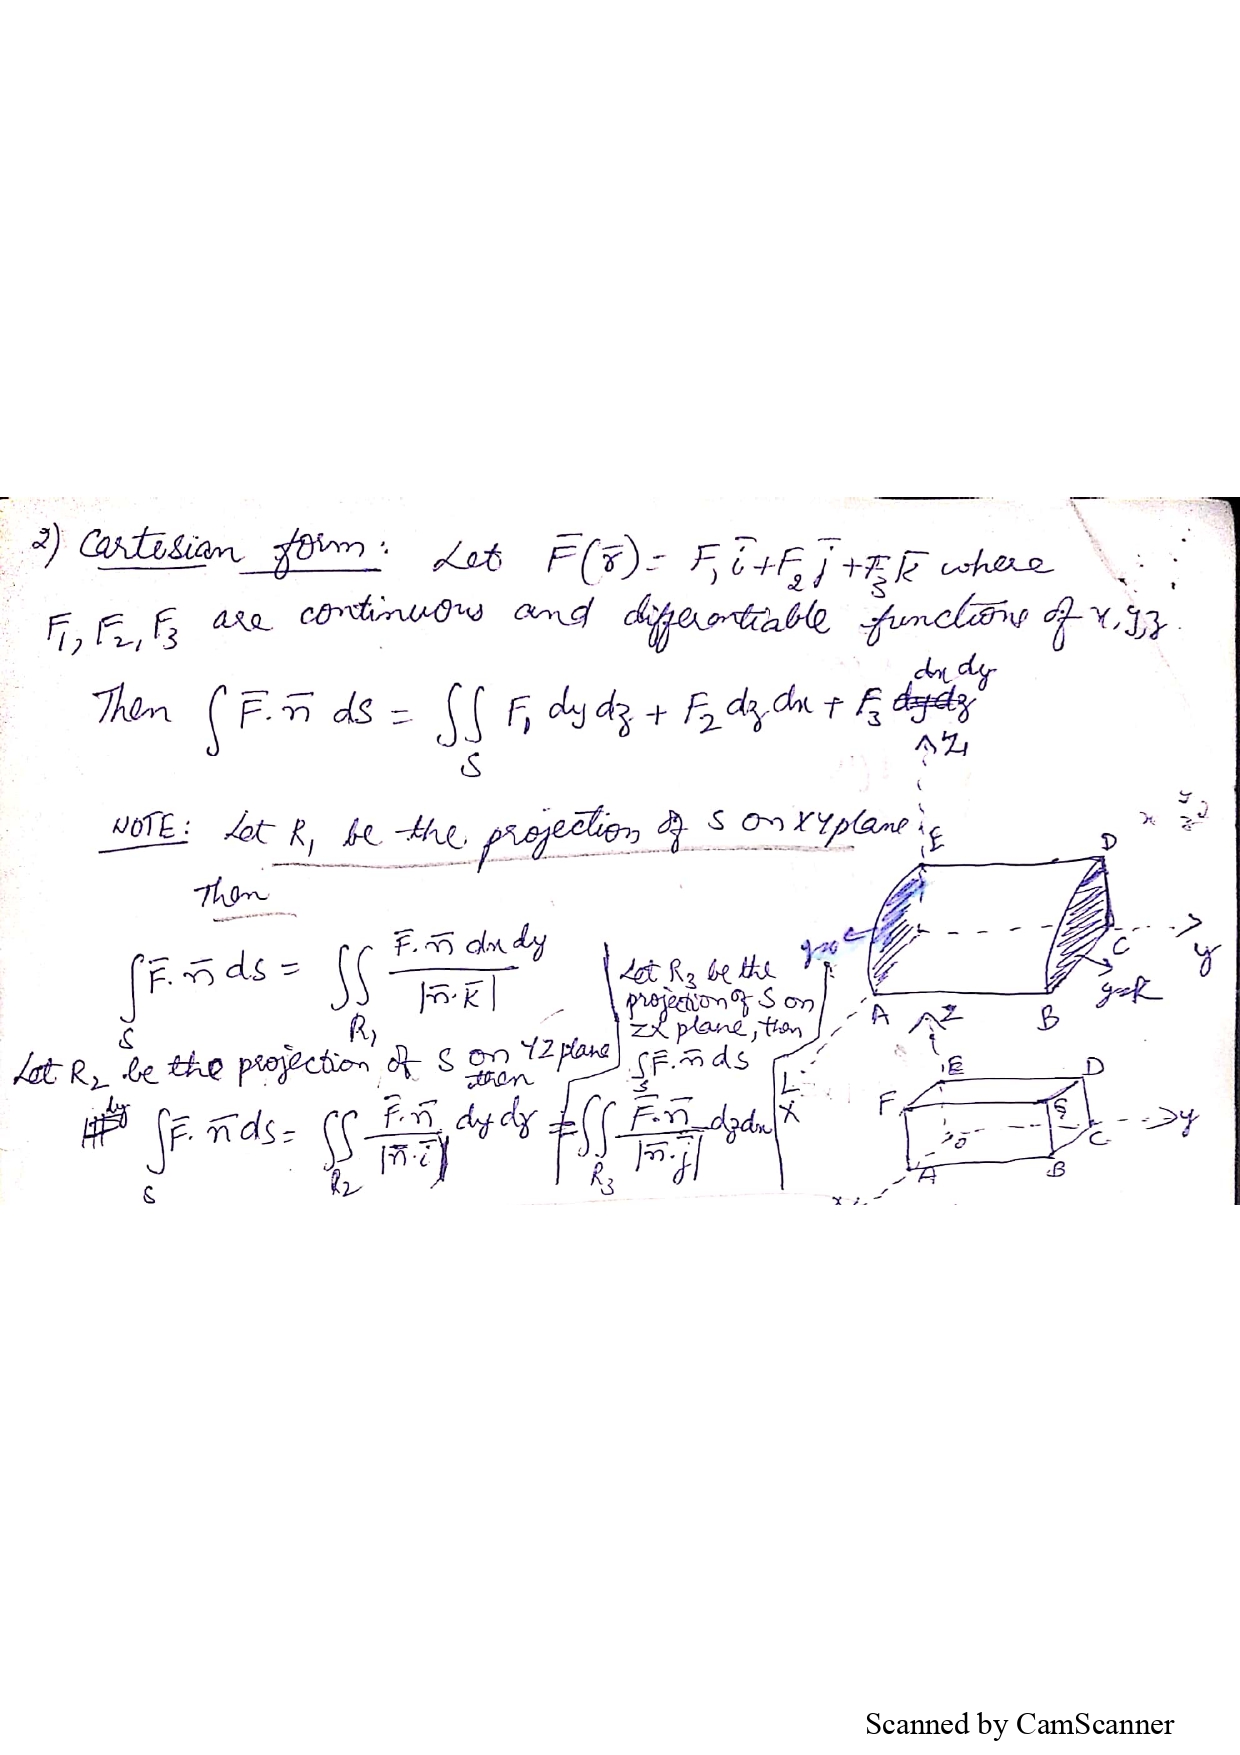 2) Cartesian form: Let F̄(r̄) = F₁ī + F₂j̄ + F₃k̄ where
F₁, F₂, F₃ are continuous and differentiable functions of x, y, z.
Then ∫ F̄.n̄ ds = ∬_S F₁ dy dz + F₂ dz dx + F₃ dx dy
NOTE: Let R₁ be the projection of S on XY plane
Then
∫_S F̄.n̄ ds = ∬_R₁ F̄.n̄ dx dy / |n̄.k̄|
Let R₂ be the projection of S on YZ plane
then
∫_S F̄.n̄ ds = ∬_R₂ F̄.n̄ / |n̄.ī| dy dz
Let R₃ be the
projection of S on
ZX plane, then
∫_S F̄.n̄ ds
= ∬_R₃ F̄.n̄ / |n̄.j̄| dz dx
Z
E
D
C
y
A
B
X
Z
E
D
F
G
O
C
y
A
B
x
Scanned by CamScanner